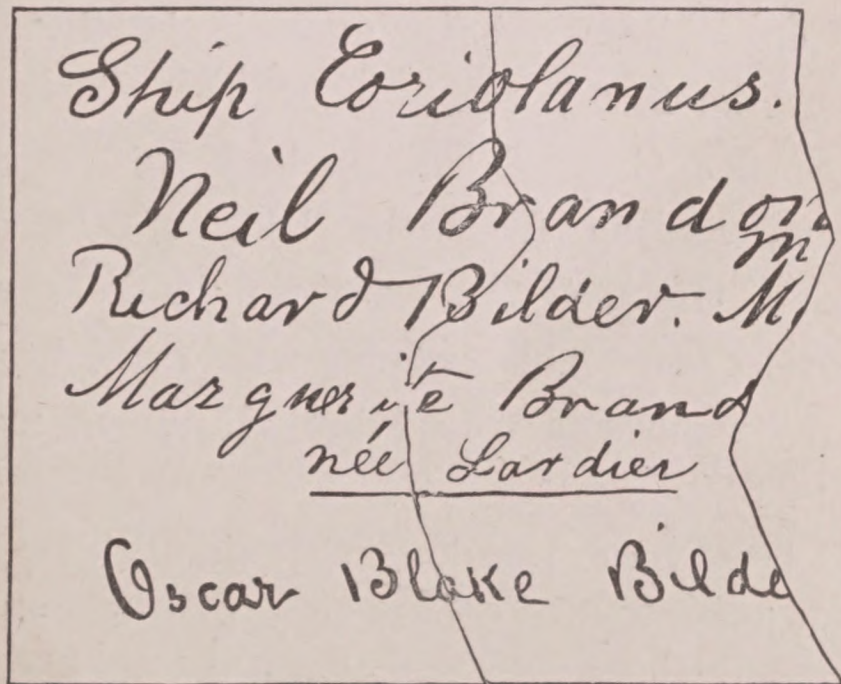 Ship Coriolanus.
Neil Brandon
m
Richard Bilder. M
Marguerite Brand
née Lardier
Oscar Blake Bilde